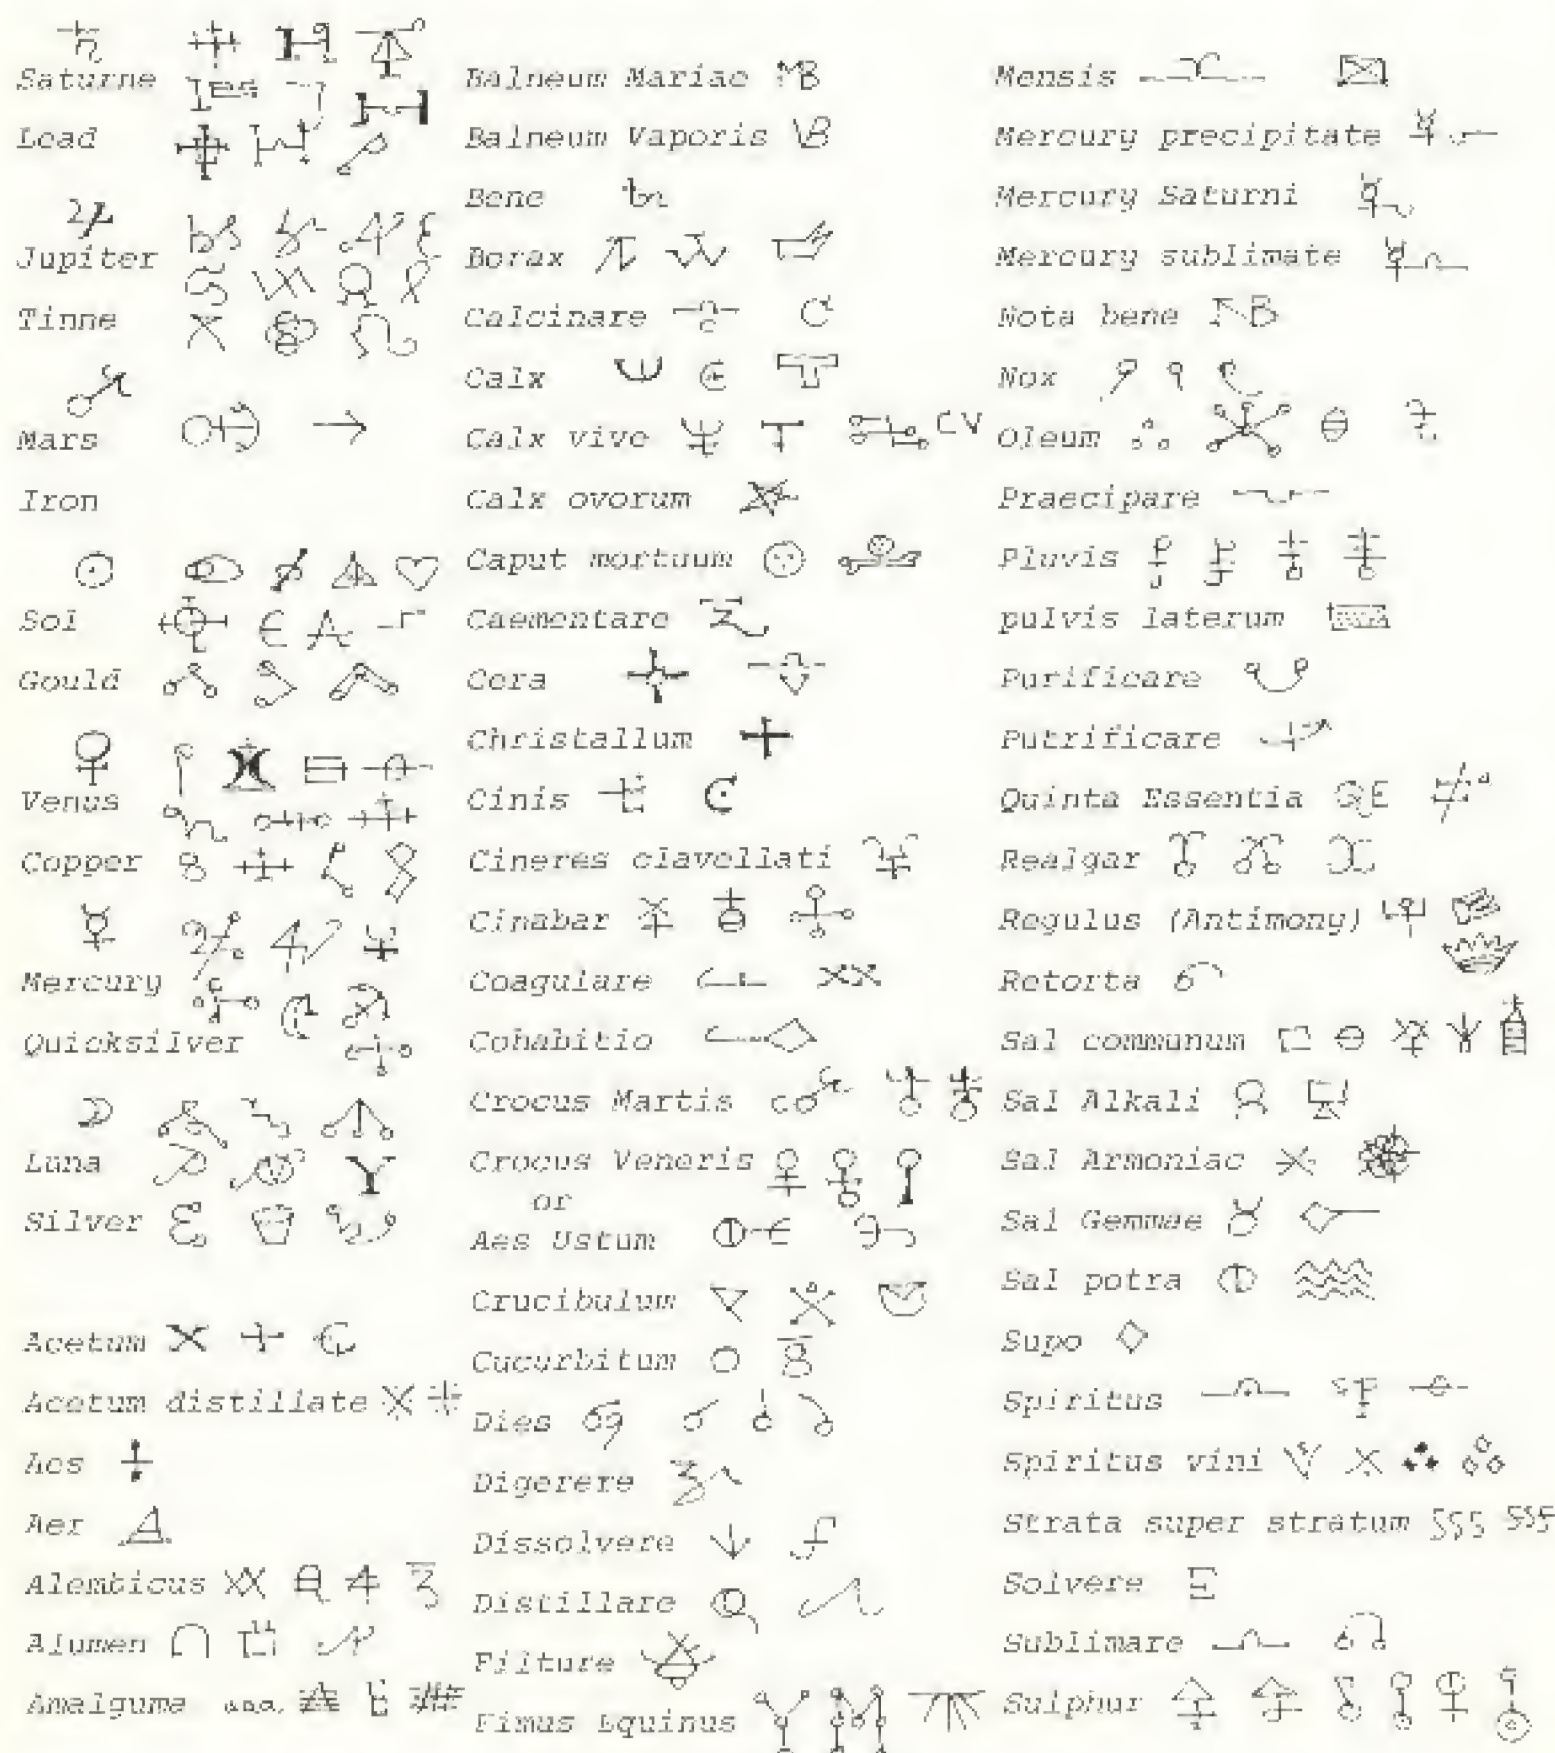 Saturne
Lead
Jupiter
Tinne
Mars
Iron
Sol
Gould
Venus
Copper
Mercury
Quicksilver
Luna
Silver
Acetum
Acetum distillate
Aes
Aer
Alembicus
Alumen
Amalguma aaa
Balneum Mariae MB
Balneum Vaporis VB
Bene
Borax
Calcinare
Calx
Calx vive CV
Calx ovorum
Caput mortuum
Caementare
Cera
Christallum
Cinis
Cineres clavellati
Cinabar
Coagulare
Cohabitio
Crocus Martis
Crocus Veneris
or
Aes Ustum
Crucibulum
Cucurbitum
Dies
Digerere
Dissolvere
Distillare
Filture
Fimus Equinus
Mensis
Mercury precipitate
Mercury Saturni
Mercury sublimate
Nota bene NB
Nox
Oleum
Praecipare
Pluvis
pulvis laterum
Purificare
Putrificare
Quinta Essentia QE
Realgar
Regulus (Antimony)
Retorta
Sal communum
Sal Alkali
Sal Armoniac
Sal Gemmae
Sal potra
Supo
Spiritus
Spiritus vini
Strata super stratum SSS SSS
Solvere
Sublimare
Sulphur